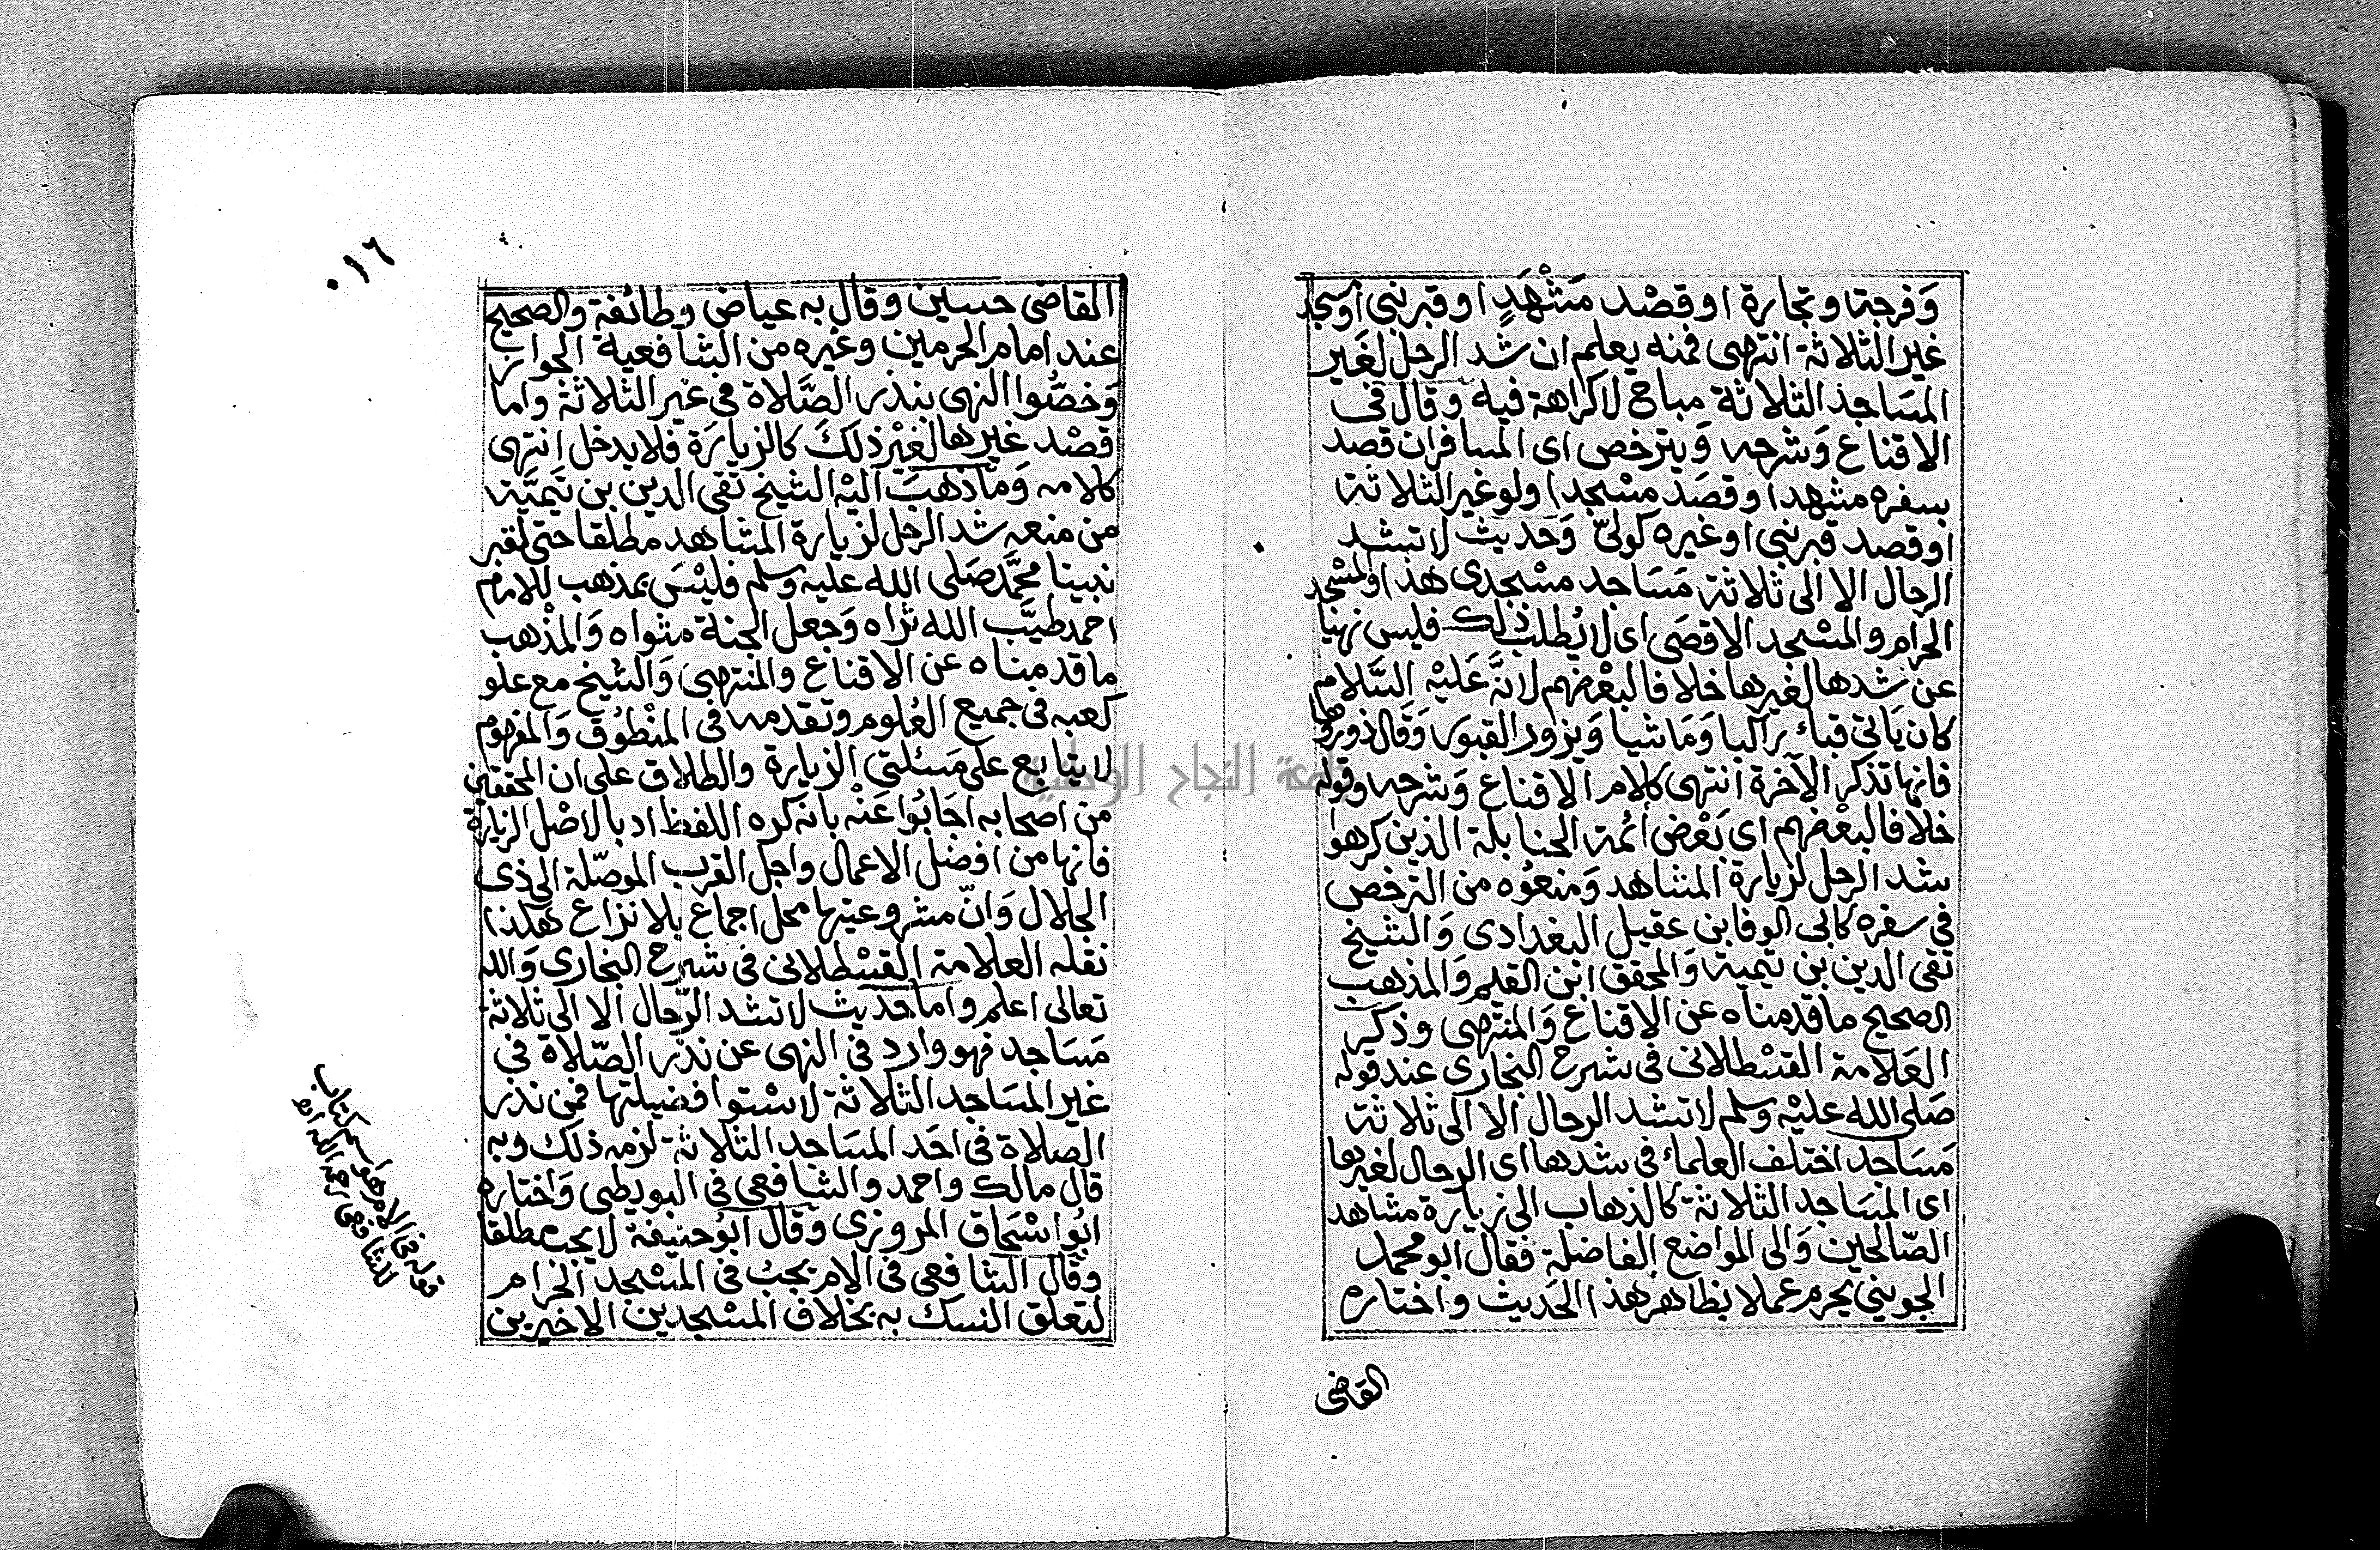 وَفرجة وتجارة او قصْد مَشْهَدٍ او قبر نبى او مسجد
غير الثلاثة انتهى فمنه يعلم ان شد الرحل لغَير
المسَاجد الثلاثة مباح لا كراهة فيه وقال فى
الاقناع وَشرحه وَيترخص اى المسافر ان قصد
بسفره مشهدا او قصَد مسْجدا ولو غير الثلاثة
او قصد قبر نبى او غيره كولىّ وَحديث لا تشد
الرحال الا الى ثلاثة مَسَاجد مسْجدى هذا والمسْجد
الحرام والمسْجد الاقصَى اى لا يُطلب ذلك فليس نهيا
عن شدها لغيرها خلافا لبعْضهم لانَّه عَليْه السَّلام
كان يَاتى قباء راكبا وَمَاشيا وَيزور القبور وَقال زوروها
فانها تذكر الآخرة انتهى كلام الاقناع وَشرحه وقوله
خلافا لبعْضهم اى بَعْض أئمة الحنابلة الذين كرهوا
شد الرحل لزيارة المشاهد وَمنعُوه من الترخص
فى سفره كابى الوفا بن عقيل البغدادى وَالشيخ
تقى الدين بن تيمية وَالمحقق ابن القيم وَالمذهب
الصحيح ما قدمناه عن الاقناع وَالمنتهى وذكر
العَلامة القسْطلانى فى شرح البخارى عند قوله
صَلى الله عليْه وسلم لا تشد الرحال الا الى ثلاثة
مَسَاجد اختلف العلماء فى شدها اى الرحال لغيرها
اى المسَاجد الثلاثة كالذهاب الى زيارة مشاهد
الصّالحين وَالى المواضع الفاضلة فقال ابو محمد
الجوينى يحرم عملا بظاهر هذا الحَديث واختاره
القاضى
٠١٦
القاضى حسين وقال به عياض وطائفة والصحيح
عند امام الحرمين وغيره من الشافعية الجواز
وَخصُّوا النهى بنذر الصَّلاة فى غير الثلاثة واما
قصْد غيرها لغيْر ذلك كالزيارَة فلا يدخل انتهى
كلامه وَما ذهبَ اليْه الشيخ تقى الدين بن تيميَّة
من منعه شد الرحل لزيارة المشاهد مطلقا حتى لقبر
نبينا محمَّد صَلى الله عليه وسلم فليْسَ بمذهب للامام
احمد طيَّب الله ثراه وَجعل الجنة مثواه وَالمذْهب
ما قدمناه عن الاقناع والمنتهى وَالشيخ مع علو
كعبه فى جميع العُلوم وتقدمه فى المنْطوُق وَالمفهوم
لا يتابع على مَسئلتي الزيارة والطلاق على ان المحققين
من اصحابه اجَابُوا عَنْه بانه كره اللفظ ادبا لا اصْل الزيارة
فانها من افضل الاعمال واجل القرب الموصّلة الى ذى
الجلال وَانّ مشروعيتها محل اجماع بلا نزاع هكذا
نقله العلامة القسْطلانى فى شرح البخارى وَالله
تعالى اعلم واما حديث لا تشد الرّحال الا الى ثلاثة
مَسَاجد فهو وارد فى النهى عن نذر الصّلاة فى
غير المسَاجد الثلاثة لاسْتوا فضيلتها فمن نذر
الصلاة فى احَد المسَاجد الثلاثة لزمه ذلك وبه
قال مالك واحمد والشافعى فى البويطى وَاختاره
ابُو اسْحاق المروزى وقال ابوُ حنيفة لا يجب مطلقا
وقال الشافعى فى الام يجبُ فى المسْجد الحرام
لتعلق النسك به بخلاف المسْجدين الاخيرين
قوله فى الام هو اسم كتاب
للشافعى رحمه الله اهـ
جامعة النجاح الوطنية